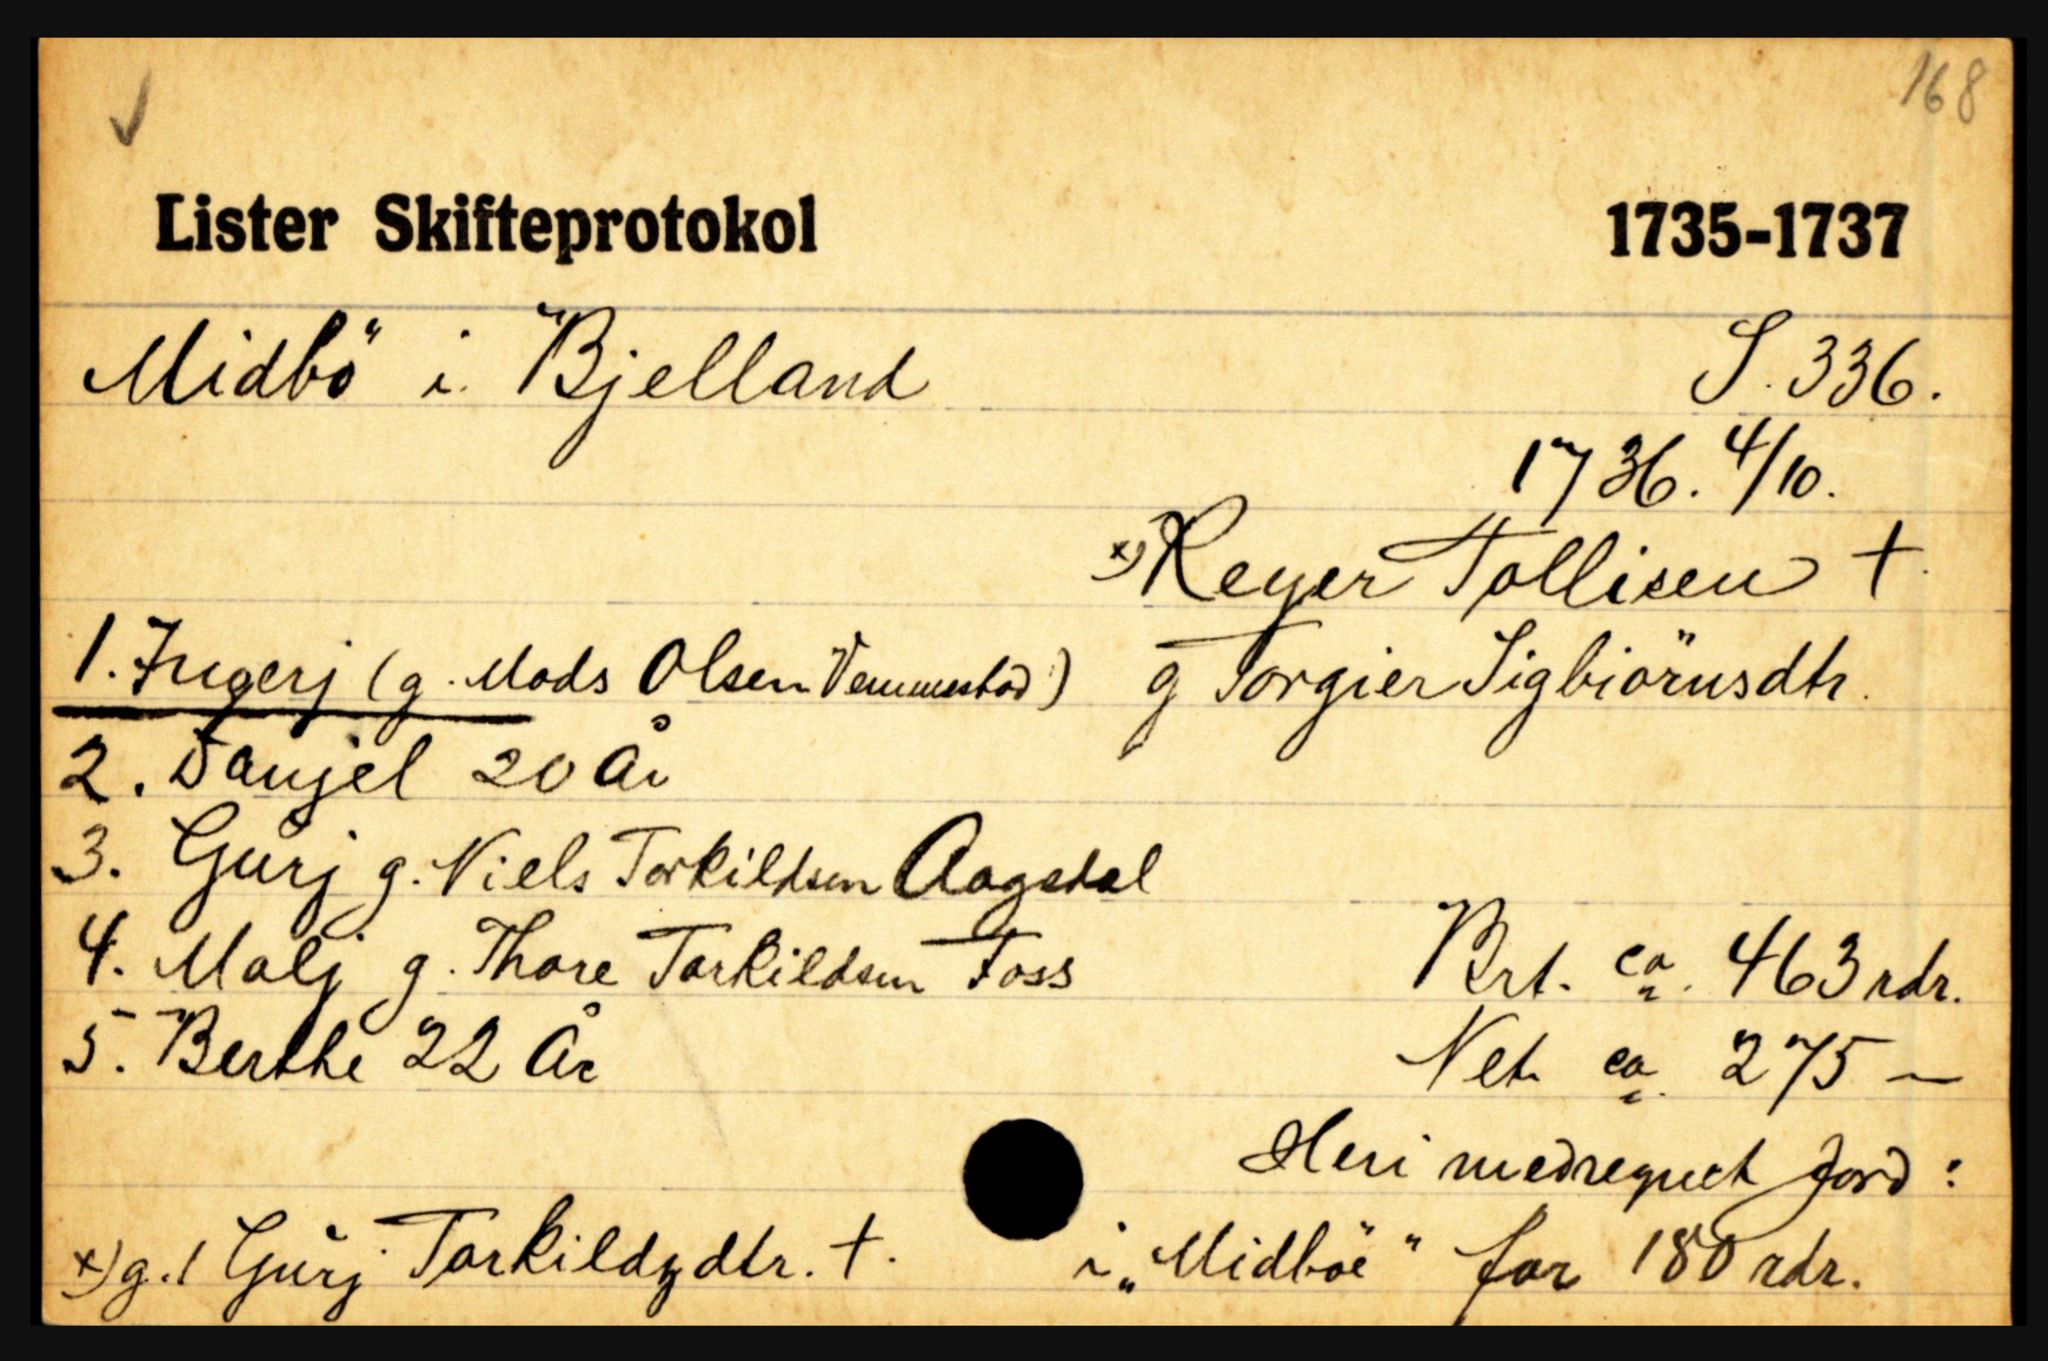 168
Lister Skifteprotokol 1735-1737
Midbö i Bjelland S. 336.
1736. 4/10.
x) Reyer Tollisen †
1. Ingerj (g. Mads Olsen Vemmestad) g Torgier Sigbiörnsdtr.
2. Danjel 20 År
3. Gurj g. Niels Torkildsen Aagedal
4. Malj g. Thore Torkildsen Foss Brt. ca. 463 rdr.
5. Berthe 22 År Net. ca. 275 —
Heri medregnet Jord:
x) g. 1 Gurj Torkildzdtr. †. i „Midböe" for 180 rdr.